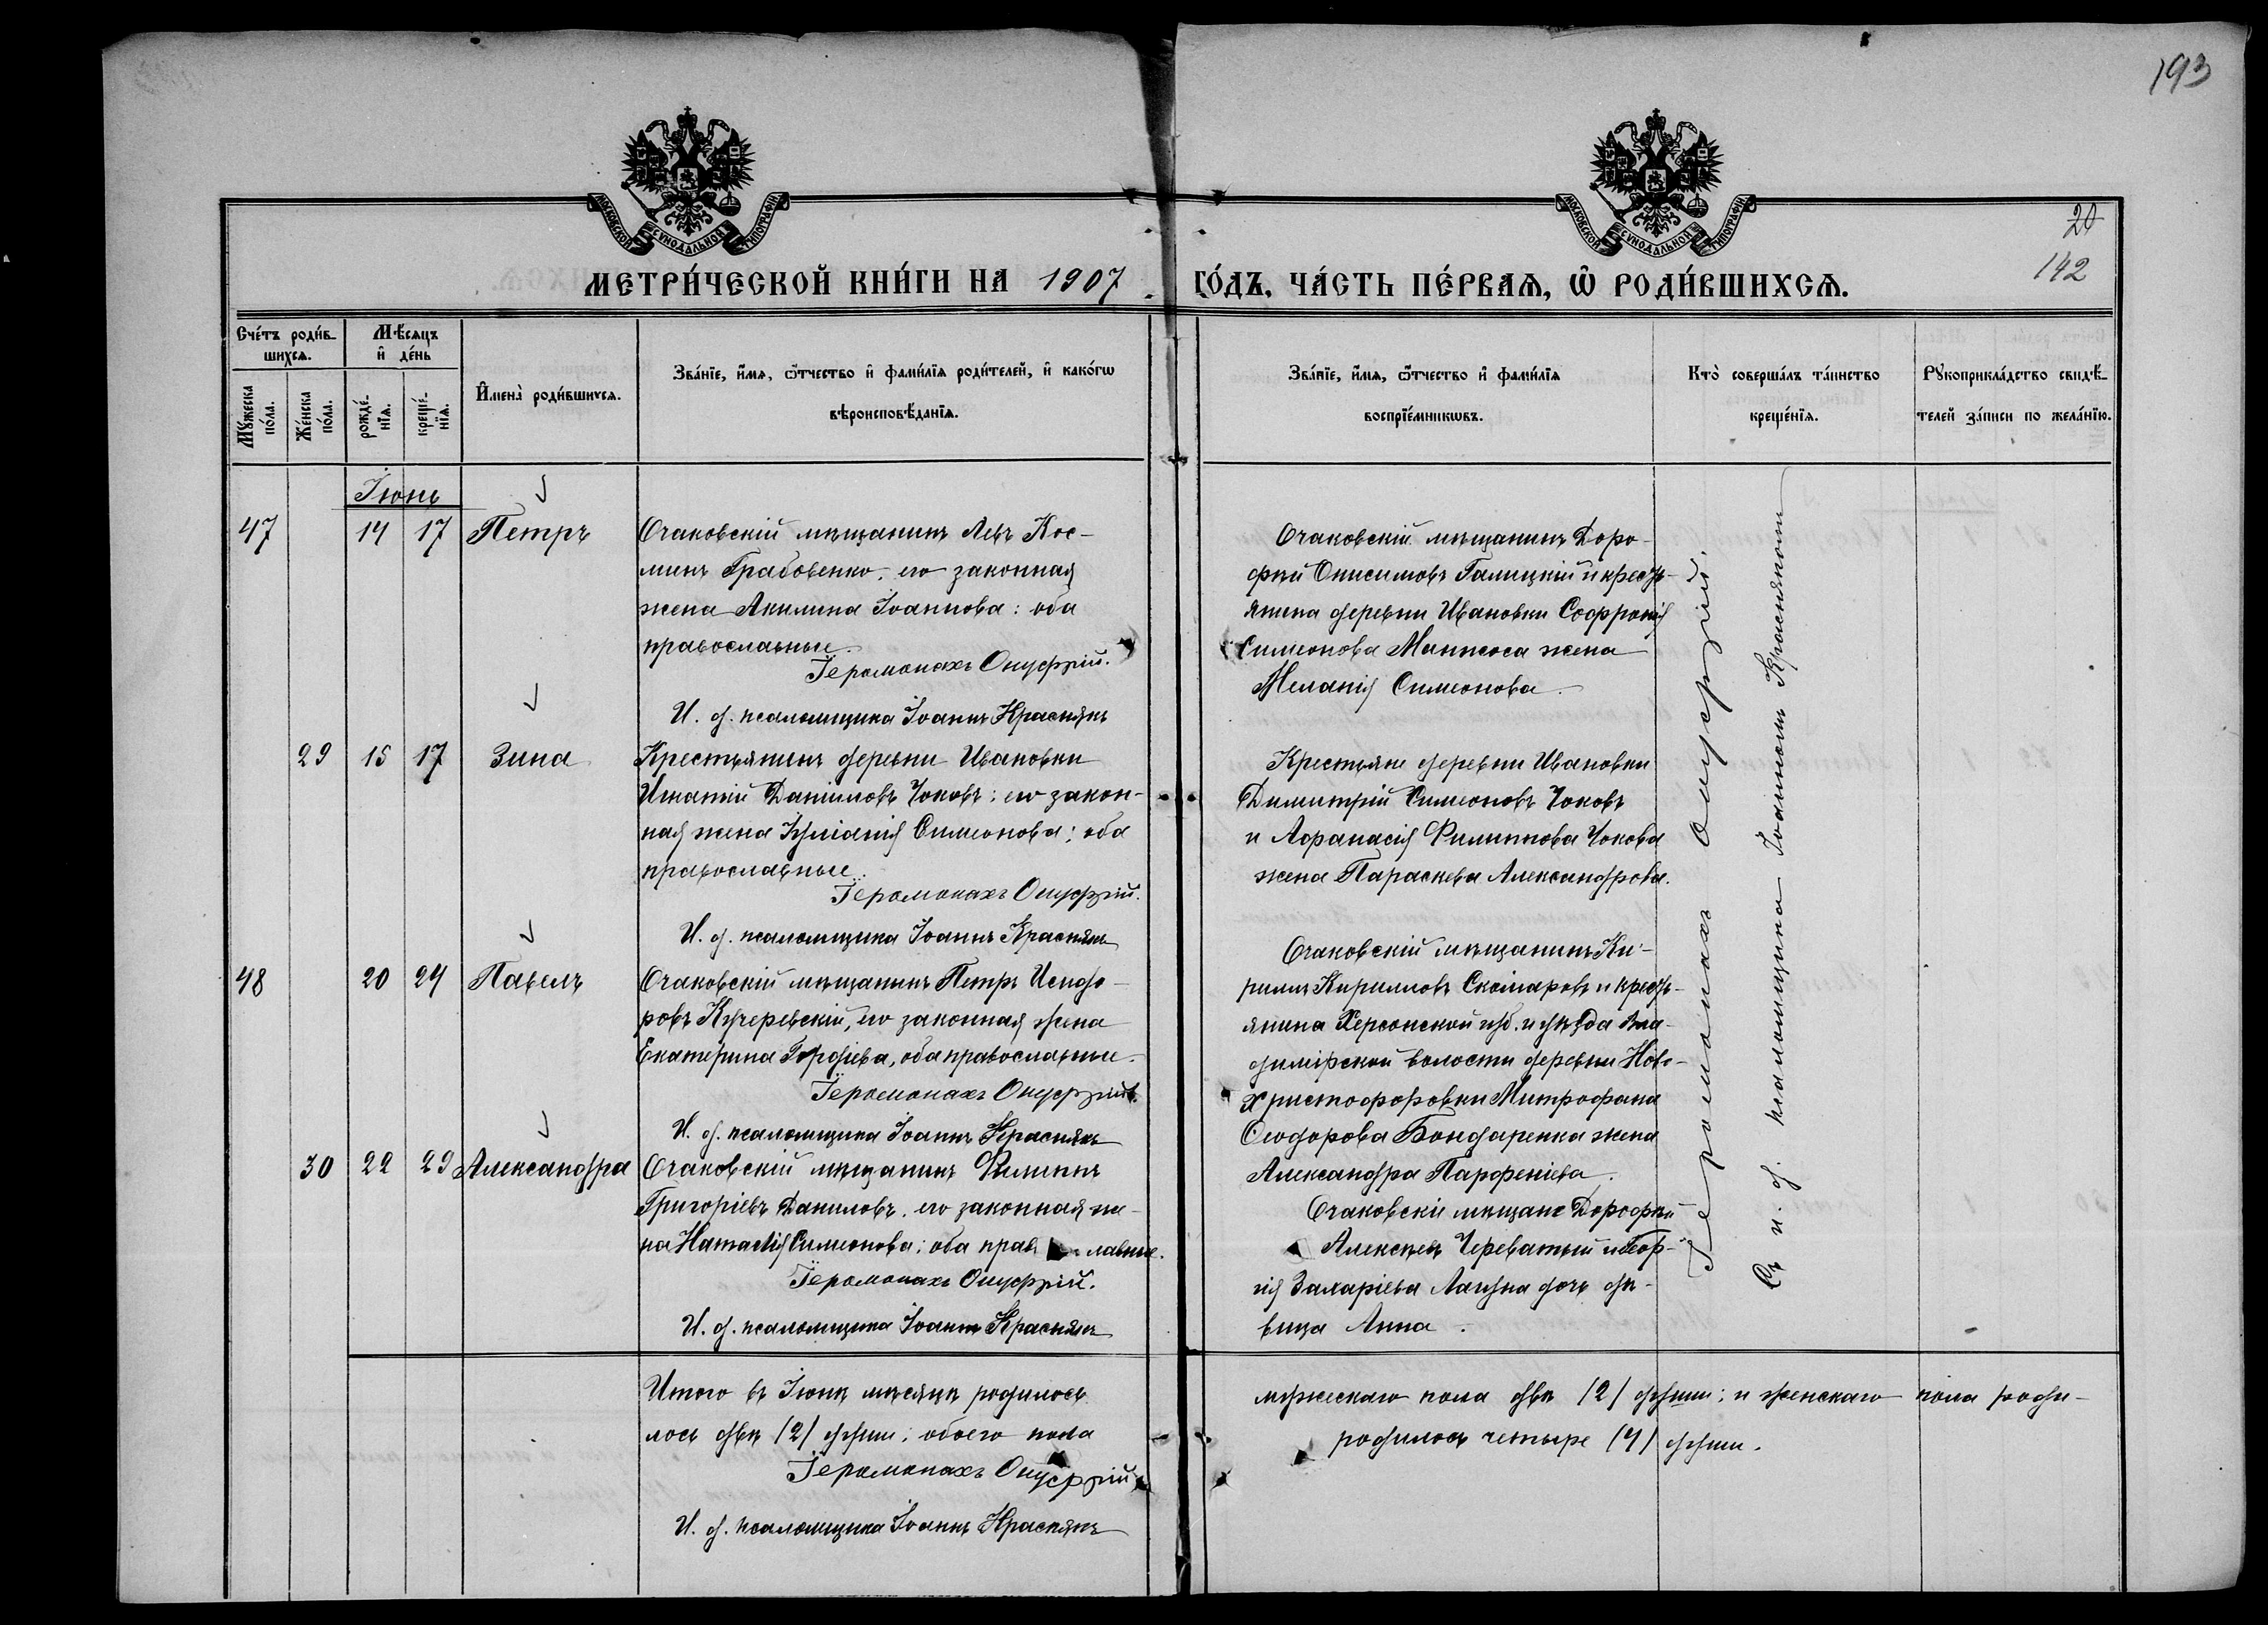 193
20
142
МОСКОВСКОЙ СУНОДАЛЬНОЙ ТИПОГРАФІИ
МОСКОВСКОЙ СУНОДАЛЬНОЙ ТИПОГРАФІИ
МЕТРИ́ЧЕСКОЙ КНИ́ГИ НА 1907 ГО́ДЪ, ЧА́СТЬ ПЕ́РВАѦ, Ѡ҆ РОДИ́ВШИХСѦ.
Сче́тъ роди́в-
шихсѧ.
Мѣ́сѧцъ
и҆ де́нь
Мꙋ́жеска по́ла.
Же́нска по́ла.
рожде́-
нїѧ.
креще́-
нїѧ.
И҆мена̀ роди́вшихсѧ.
Зва́нїе, и҆́мѧ, ѻ҆́тчество и҆ фами́лїѧ роди́телей, и҆ како́гѡ
вѣроисповѣ́данїѧ.
Зва́нїе, и҆́мѧ, ѻ҆́тчество и҆ фами́лїѧ
воспрїе́мникѡвъ.
Кто̀ соверша́лъ та́инство
креще́нїѧ.
Рꙋкоприкла́дство свидѣ́-
телей за́писи по жела́нїю.
Іюнь
47 14 17 Петръ
Очаковскій мѣщанинъ Левъ Кос-
минъ Грабовенко, его законная
жена Акилина Іоаннова: оба
православные.
Іеромонахъ Онуфрій.
И. д. псаломщика Іоаннъ Краснянъ
Очаковскій мѣщанинъ Доро-
фей Онисимовъ Галицкій и кресть-
янина деревни Ивановки Софронія
Симеонова жена
Меланія Симеонова.
29 15 17 Зина
Крестьянинъ деревни Ивановки
Игнатій Даніиловъ Чоковъ: его закон-
ная жена Іуліанія Симеонова; оба
православные.
Іеромонахъ Онуфрій.
И. д. псаломщика Іоаннъ Краснянъ
Крестьяне деревни Ивановки
Димитрій Симеоновъ Чоковъ
и Афанасія Филиппова Чокова
жена Параскева Александрова.
48 20 24 Павелъ
Очаковскій мѣщанинъ Петръ Исидо-
ровъ Кучеревскій, его законная жена
Екатерина Гордіева, оба православные.
Іеромонахъ Онуфрій.
И. д. псаломщика Іоаннъ Краснянъ
Очаковскій мѣщанинъ Ки-
риллъ Кирилловъ Скляровъ и кресть-
янина Херсонской губ. и уѣзда Вла-
димірской волости деревни Ново-
Христофоровки Митрофана
Ѳеодорова Бондаренка жена
Александра Парфеніева.
30 22 29 Александра
Очаковскій мѣщанинъ Филиппъ
Григоріевъ Даниловъ, его законная же-
на Наталія Симеонова; оба прав лавные.
Іеромонахъ Онуфрій.
И. д. псаломщика Іоаннъ Краснянъ
Очаковскіе мѣщане Дорофей
Алексѣевъ Череватый и Геор-
гія Захаріева Лагуна дочь дѣ-
вица Анна.
Іеромонахъ Онуфрій.
Съ и. д. псаломщика Іоанномъ Красняномъ
Итого въ Іюнѣ мѣсяцѣ родилось мужескаго пола двѣ /2/ души; и женскаго пола роди-
лось двѣ /2/ души; обоего пола родилось четыре /4/ души.
Іеромонахъ Онуфрій
И. д. псаломщика Іоаннъ Краснянъ